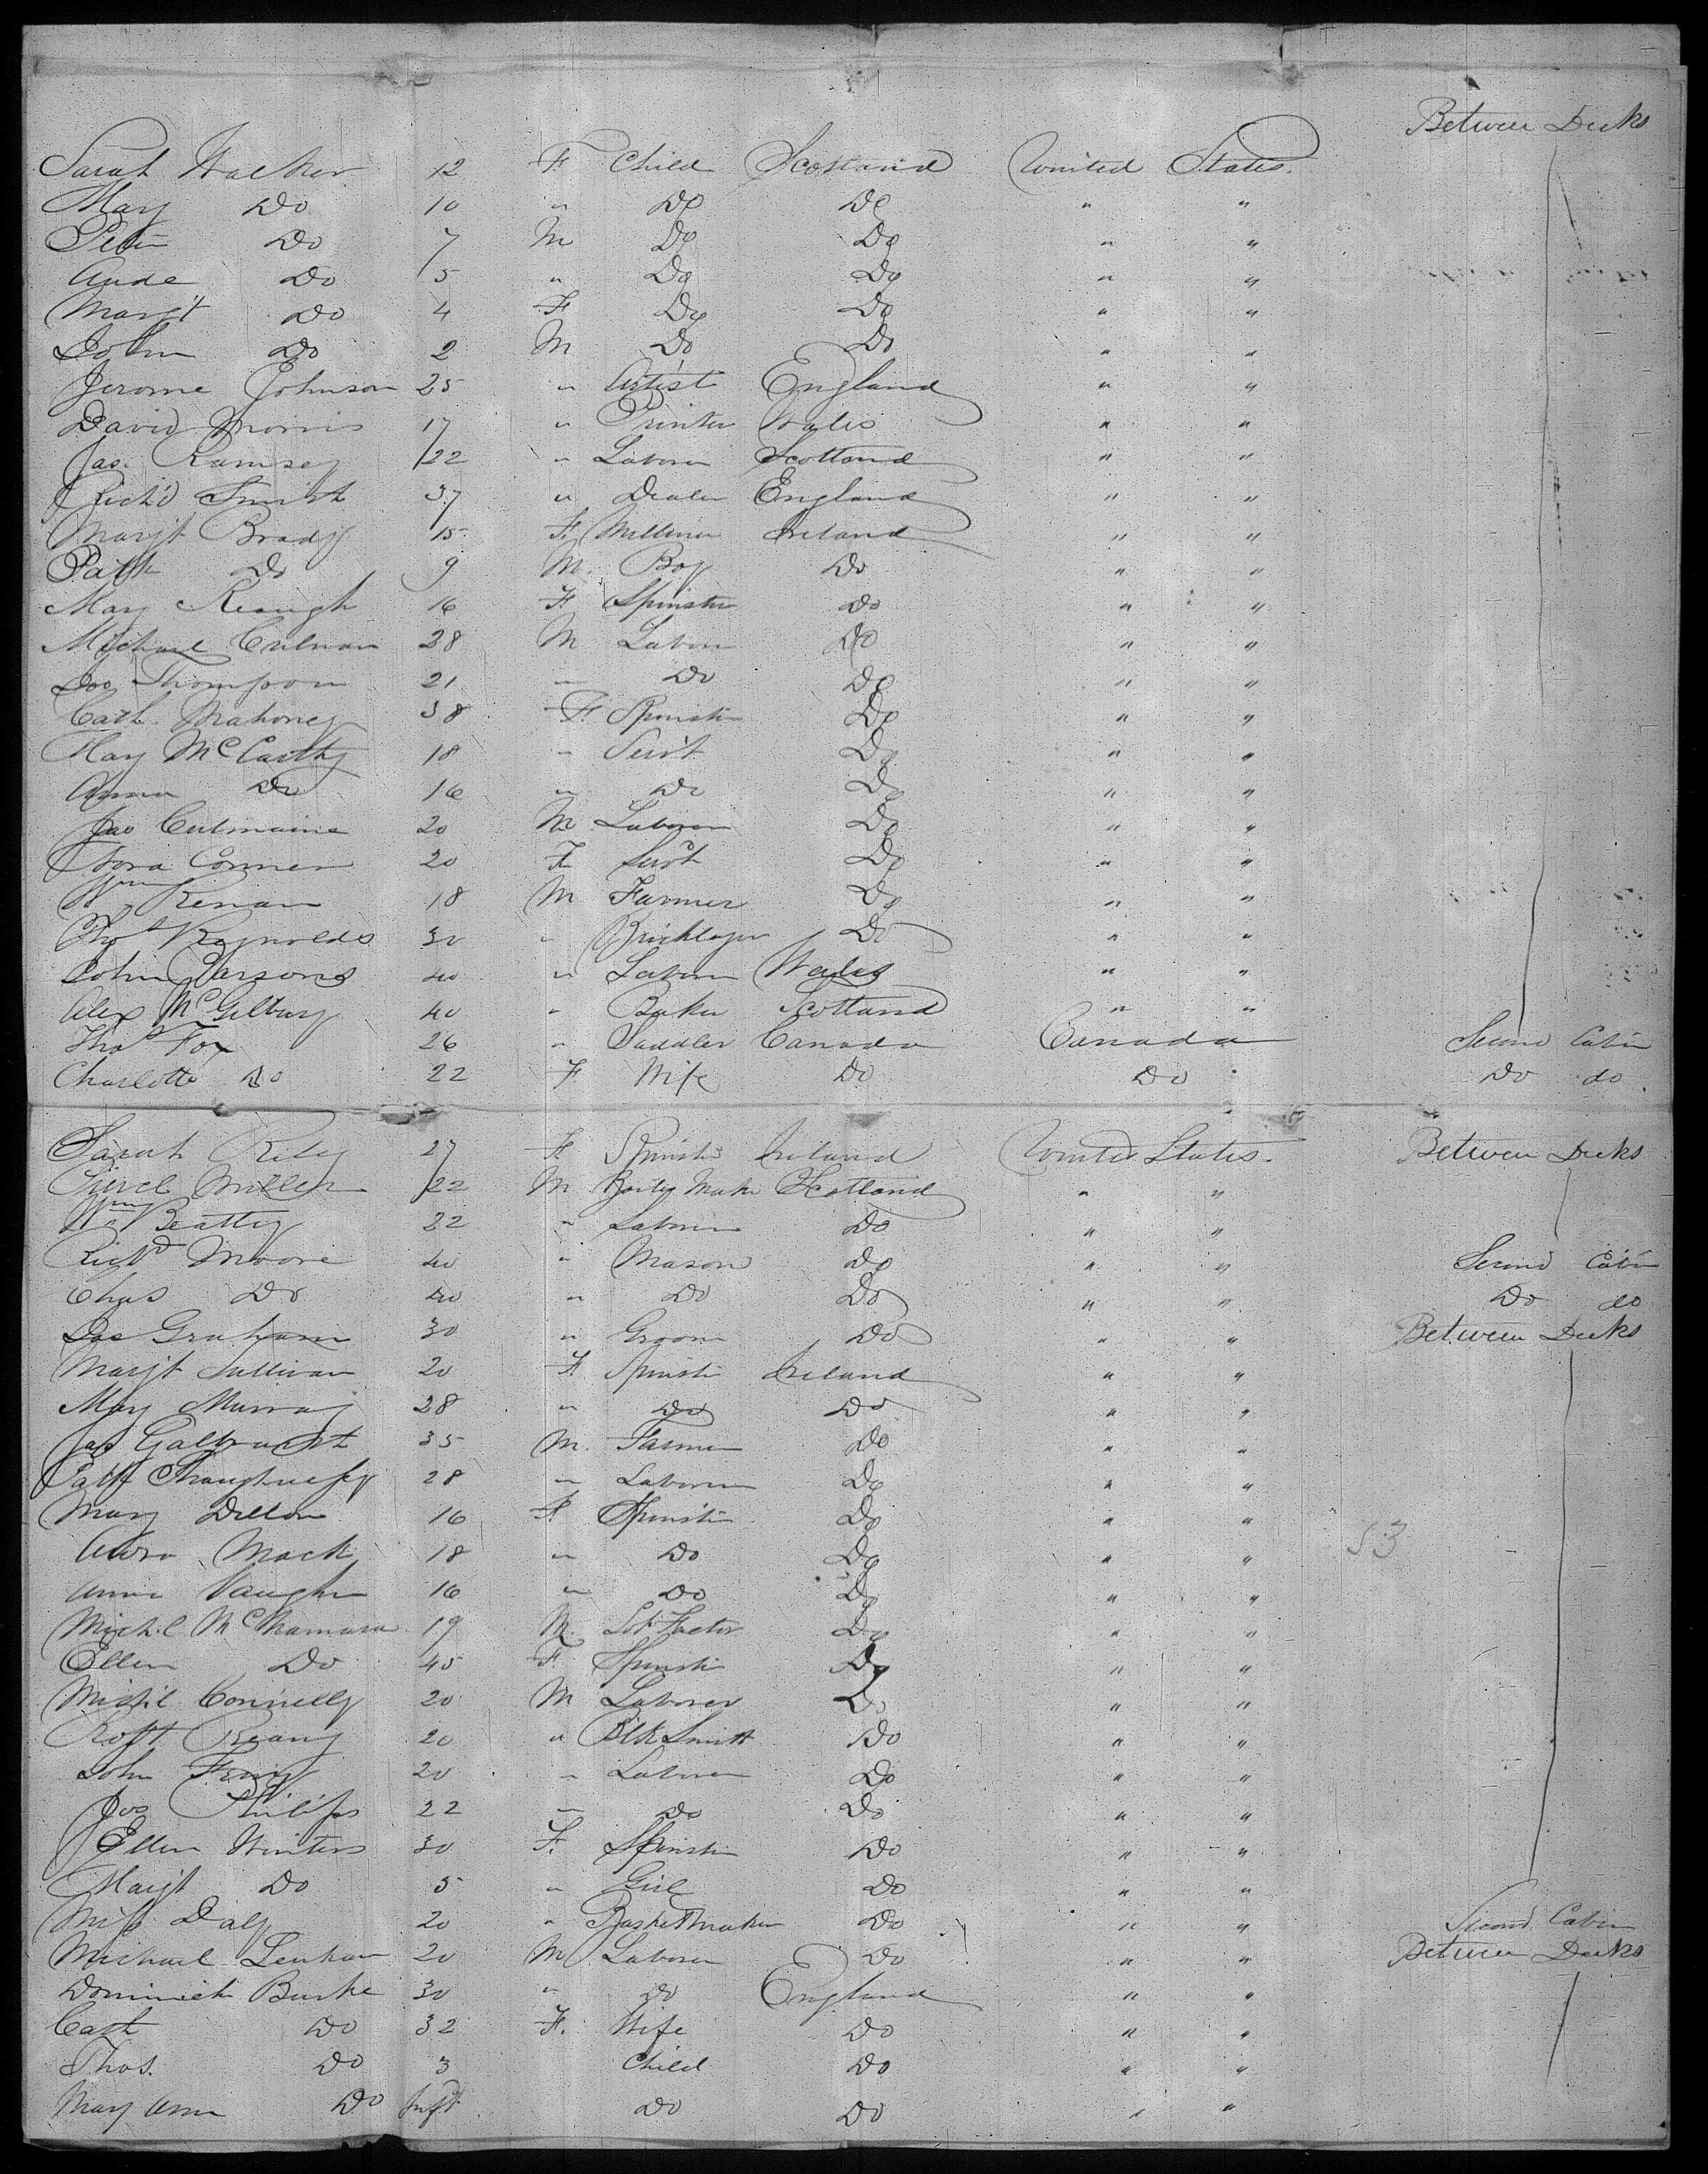 Between Decks
Sarah Walker 12 F Child Scotland United States.
Mary Do 10 " Do Do " "
Peter Do 7 M Do Do " "
Do 5 " Do Do " "
Margt Do 4 F Do Do " "
John Do 2 M Do Do " "
Jerome Johnson 25 " Artist England " "
David Morris 17 " Printer Wales " "
Jas. Ramsey 22 " Laborer Scotland " "
Rich'd Smith 37 " Dealer England " "
Margt Brady 15 F Milliner Ireland " "
Patk Do 9 M. Boy Do " "
Mary Keough 16 F Spinster Do " "
Michael Culnan 28 M Laborer Do " "
Jno Thompson 21 " Do Do " "
Cath. Mahoney 38 F. Spinster Do " "
Mary McCarthy 18 " Servt Do " "
Anna Do 16 " Do Do " "
Jno Culmaine 20 M Laborer Do " "
Nora Conner 20 F Servt Do " "
Wm Kenan 18 M Farmer Do " "
Thos Reynolds 30 " Bricklayer Do " "
John Parsons 40 " Laborer Wales " "
Alex McGilbury 40 " Baker Scotland " "
Thos Fox 26 " Saddler Canada Canada Second Cabin
Charlotte Do 22 F Wife Do Do Do do
Sarah Riley 27 F Spinster Ireland United States. Between Decks
Miller 22 M Maker Scotland " "
Wm Beatty 22 " Laborer Do " "
Richd Moore 40 " Mason Do " " Second Cabin
Chas Do 40 " Do Do " " Do do
Jas Graham 30 " Groom Do " " Between Decks
Margt Sullivan 20 F Spinster Ireland " "
Mary Murray 28 " Do Do " "
Jas Galbraith 35 M. Farmer Do " "
Patk Shaughnessy 28 " Laborer Do " "
Mary Dillon 16 F Spinster Do " "
Mack 18 " Do Do " " 53
Anne Vaughn 16 " Do Do " "
Mich.l McNamara 19 M. Do " "
Ellen Do 45 F Spinster Do " "
Mich'l Connelly 20 M Laborer Do " "
Robt Reany 20 " Blk Smith Do " "
John 20 " Laborer Do " "
Jos Philips 22 " Do Do " "
Ellen Winters 30 F. Spinster Do " "
Margt Do 5 " Girl Do " "
Miss Daly 20 " Basketmaker Do " " Second Cabin
Michael Lenhan 20 M Laborer Do " " Between Decks
Dominick Burke 30 " Do England " "
Cath Do 32 F. Wife Do " "
Thos. Do 3 Child Do " "
Mary Ann Do Inft Do Do " "